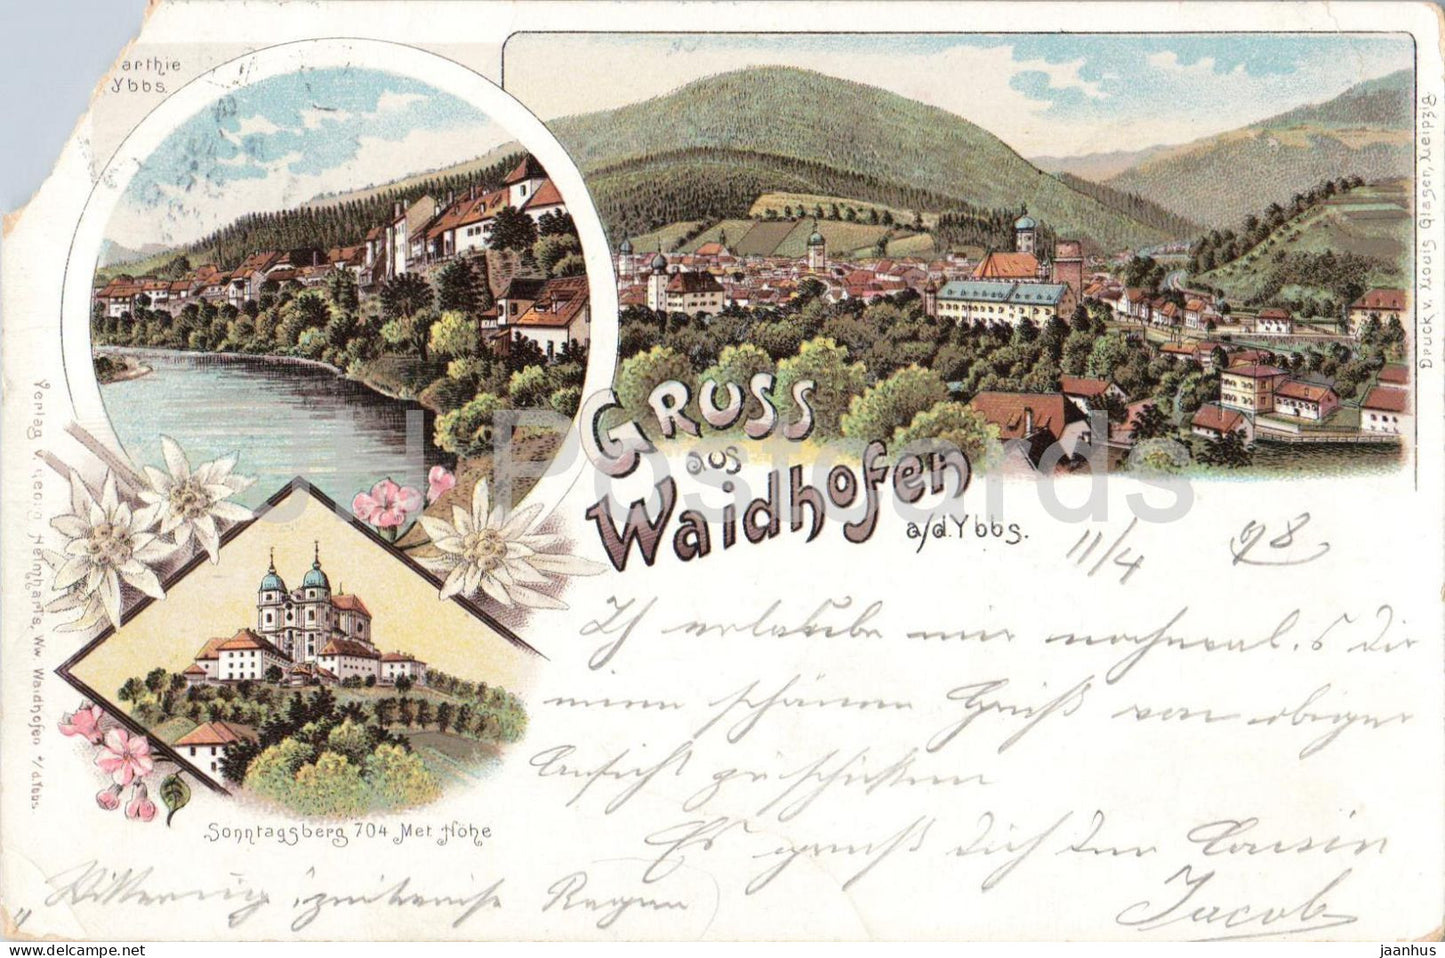 arthie
Ybbs.
Druck v. Louis Glaser, Leipzig.
GRUSS
aus
Waidhofen
a/d.Ybbs.
11/4 98
Ich erlaube mir nochmals Dir
einen schönen Gruß von obiger
Ansicht zu schicken
Es grüßt Dich Dein Cousin
Jacob
Sonntagsberg 704 Met. Höhe
Witterung: zeitweise Regen
Verlag v. Leold Reinharts, Ww. Waidhofen a/d Ybbs.
SJ Postcards
delcampe.net
jaanhus